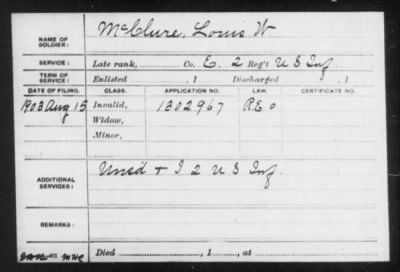 NAME OF SOLDIER: McClure, Louis W.
SERVICE: Late rank, Co. E. 2 Reg't U S Inf.
TERM OF SERVICE: Enlisted , 1 Discharged , 1
DATE OF FILING. CLASS. APPLICATION NO. LAW. CERTIFICATE NO.
1903 Aug 15 Invalid, 1302967
Widow,
Minor,
ADDITIONAL SERVICES: + I 2 U S Inf.
REMARKS:
Died , 1 , at